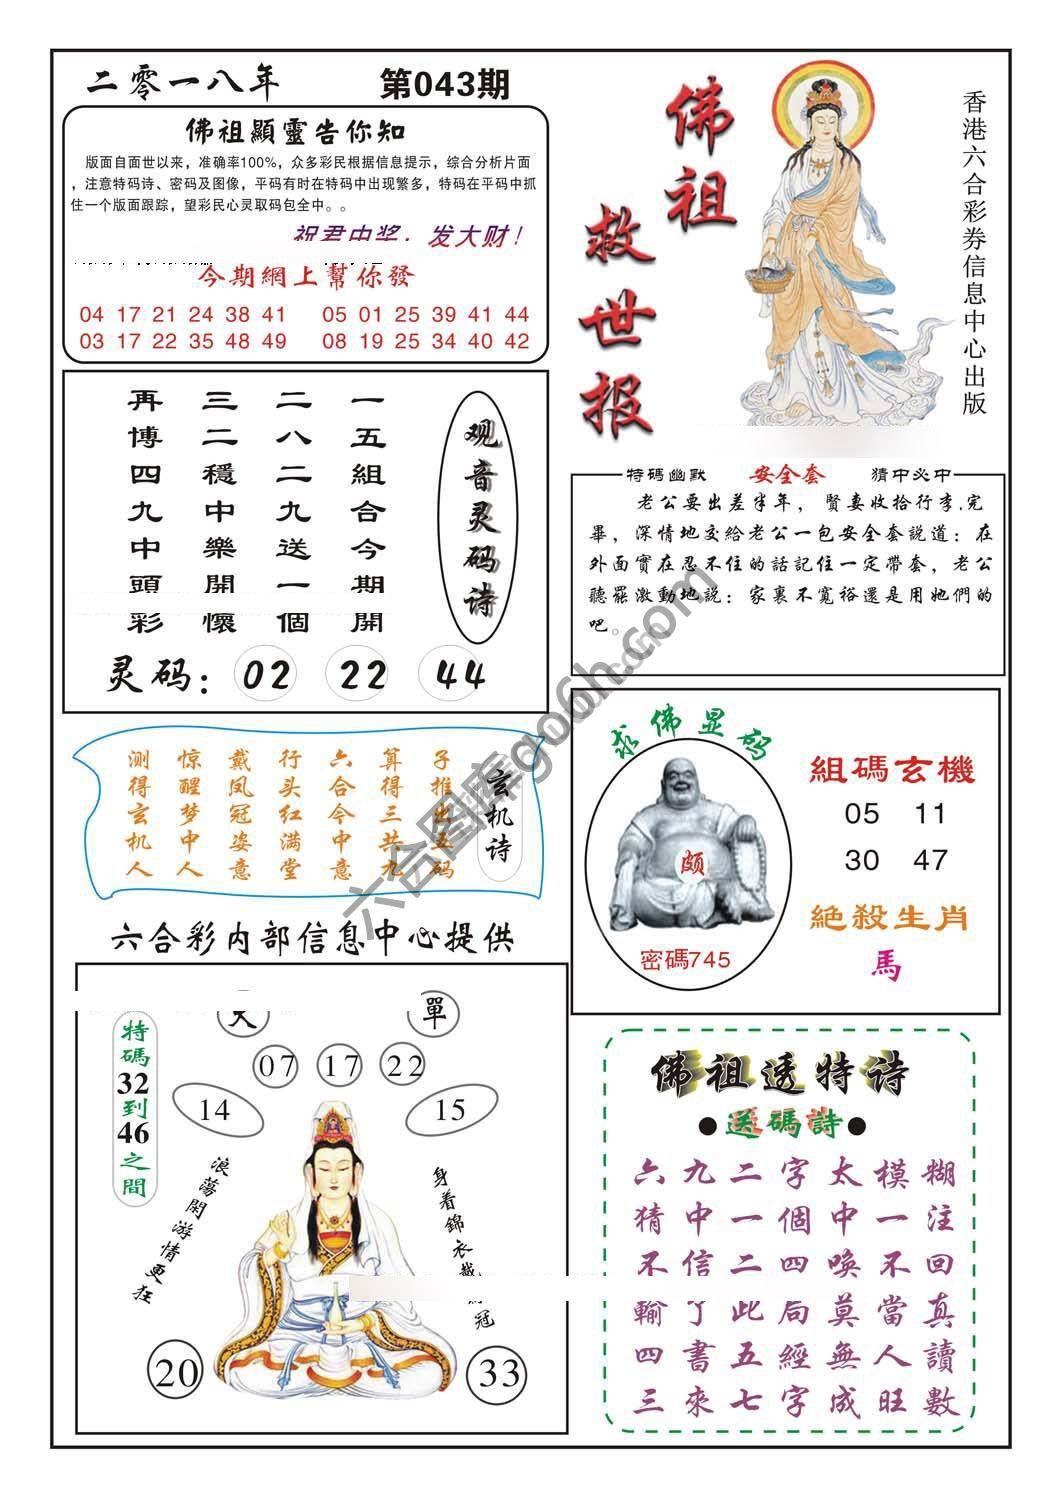 二零一八年
第043期
佛祖顯靈告你知
版面自面世以来，准确率100%，众多彩民根据信息提示，综合分析片面
，注意特码诗、密码及图像，平码有时在特码中出现繁多，特码在平码中抓
住一个版面跟踪，望彩民心灵取码包全中。。
祝君中奖，发大财！
今期網上幫你發
04 17 21 24 38 41 05 01 25 39 41 44
03 17 22 35 48 49 08 19 25 34 40 42
佛祖
救世报
香港六合彩券信息中心出版
观音灵码诗
一五組合今期開
二八二九送一個
三二穩中樂開懷
再博四九中頭彩
灵码：02 22 44
特碼幽默 安全套 猜中必中
老公要出差半年，賢妻收拾行李.完
畢，深情地交給老公一包安全套説道：在
外面實在忍不住的話記住一定帶套，老公
聽罷激動地説：家裏不寬裕還是用她們的
吧。
玄机诗
子推出五码
算得三共九
六合今中意
行头红满堂
戴凤冠姿意
惊醒梦中人
测得玄机人
求佛显码
颇
密碼745
組碼玄機
05 11
30 47
絕殺生肖
馬
六合彩内部信息中心提供
單
07 17 22
14 15
特碼32到46之間
浪蕩閑游情更狂
身着錦衣戴 冠
20 33
佛祖透特诗
●送碼詩●
六九二字太模糊
猜中一個中一注
不信二四喚不回
輸了此局莫當真
四書五經無人讀
三來七字成旺數
六合图库go6h.com